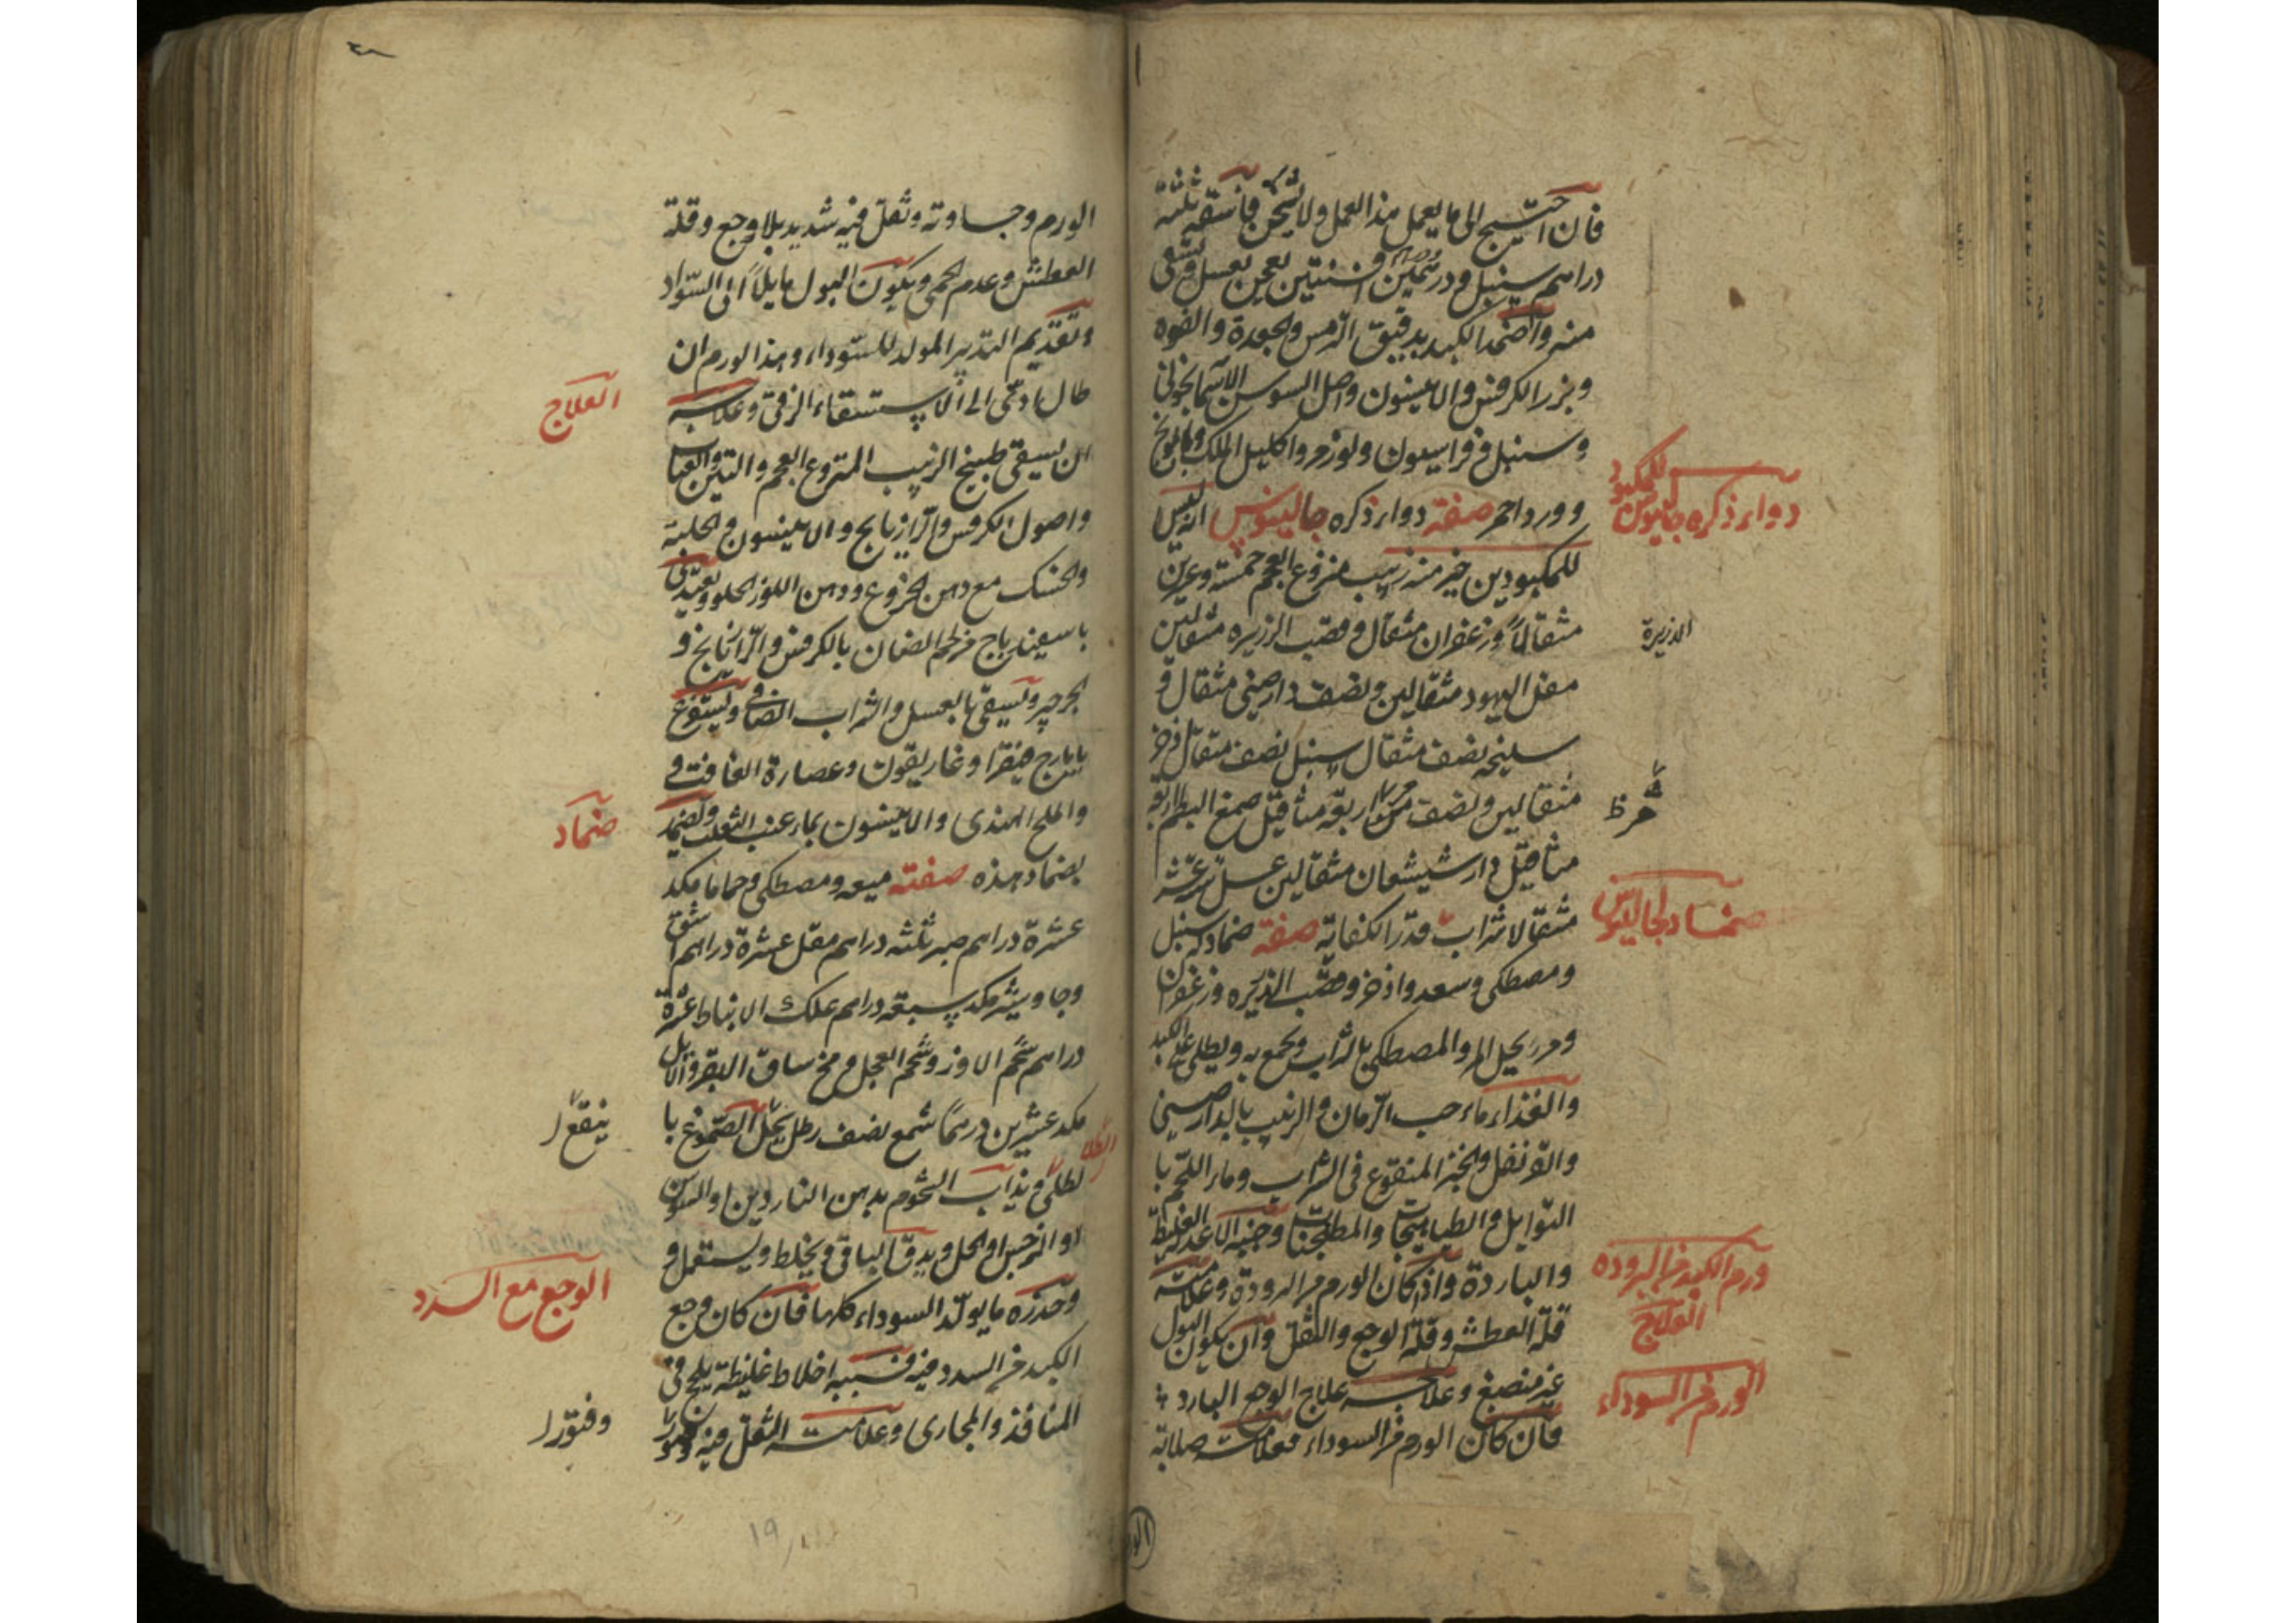 فان احتيج الى ما يعمل هذا العمل ولا يسخن فاسقه ثلثة
دراهم سنبل و درهمين افسنتين يعجن بعسل و يسقى
منه واضمد الكبد بدقيق الترمس والجعدة والفوه
وبزر الكرفس والانيسون واصل السوسن الاسمانجونى
وسنبل و فراسيون ولوز مر واكليل الملك وبابونج
وورد احمر صفة دواء ذكره جالينوس انه ليس
للمكبودين خير منه زبيب منزوع العجم خمسة وعشرين
مثقالاً وزعفران مثقال وقصب الزريره مثقالين
مقل اليهود مثقالين ونصف دارصينى مثقال و
سليخه نصف مثقال سنبل نصف مثقال اذخر
مثقالين ونصف مر اربعة مثاقيل صمغ البطم اربعة
مثاقيل دارشيشعان مثقالين عسل ستة عشر
مثقالا شراب قدر الكفاية صفة ضماد له سنبل
ومصطكى وسعد واذخر وقصب الذريره وزعفران
ومر يحل المر والمصطكى بالشراب ويجمع به ويطلى على الكبد
والغذاء ماء حب الرمان والزبيب بالدارصينى
والقرنفل والخبز المنقوع فى الشراب وماء اللحم با
التوابل والطياهيجات والمطجنات وجنبه الاغذية الغليظة
والباردة واذا كان الورم من البرودة وعلامته
قلة العطش وقلة الوجع والثقل وان يكون البول
غير منصبغ وعلاجه علاج الوجع البارد
فان كان الورم من السوداء فعلامته صلابة
دواء ذكره جالينوس للمكبود
الذريرة
ضماد لجالينوس
ورم الكبد من البرودة
العلاج
الورم من السوداء
الورم وجساوته وثقل فيه شديد بلا وجع وقلة
العطش وعدم الحمى ويكون البول مايلاً الى السواد
وتقديم التدبير المولد للسوداء وهذا الورم ان
طال ادى الى الاستسقاء الزقى وعلاجه
ان يسقى طبيخ الزبيب المنزوع العجم والتين والعناب
واصول الكرفس والرازيانج والانيسون والحلبة
والحسك مع دهن الخروع ودهن اللوز الحلو ويغذى
باسفيذباج من لحم الضان بالكرفس والرازيانج و
الجرجير ويسقى ماء العسل والشراب الصافى ويستفرغ
بايارج فيقرا وغاريقون وعصارة الغافت
والملح الهندى والانيسون بماء عنب الثعلب ويضمد
بضماد هذه صفته ميعه ومصطكى وحماما مكد
عشرة دراهم صبر ثلثه دراهم مقل عشرة دراهم اشق
وجاوشير مكد سبعة دراهم علك الانباط عشرة
دراهم شحم الاوز وشحم العجل ومخ ساق البقر والايل
مكد عشرين درهماً شمع نصف رطل يحل الصموغ با
لطلى ويذاب الشحوم بدهن الناردين او السوسن
او النرجس او الخل ويدق الباقى ويخلط ويستعمل و
وحذره ما يولد السوداء كلها فان كان وجع
الكبد من السدد فيه فسببه اخلاط غليظة يلحج فى
المنافذ والمجارى وعلامته الثقل فيه وفتور
العلاج
ضماد
ينقع
الطلا
الوجع مع السدد
وفتور
١٩